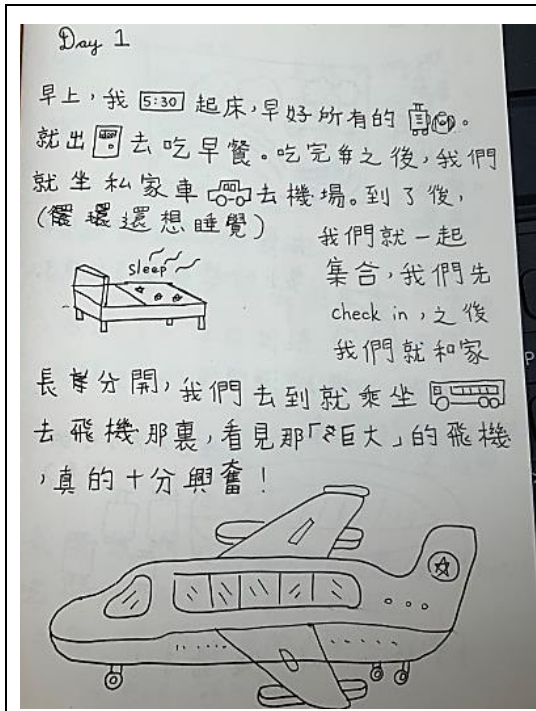 Day 1
早上，我 5:30 起床，早好所有的 。
就出 去吃早餐。吃完之後，我們
就坐私家車 去機場。到了後，
(還還想睡覺)
sleep
我們就一起
集合，我們先
check in，之後
我們就和家
長分開，我們去到就乘坐
去飛機那裏，看見那「巨大」的飛機
，真的十分興奮！